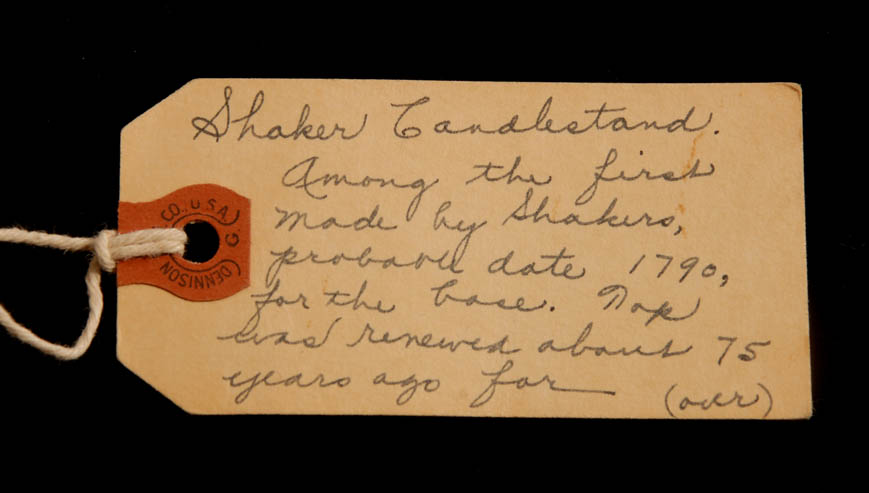 Shaker Candlestand.
Among the first
made by Shakers,
probable date 1790,
for the base. Top
was renewed about 75
years ago for
(over)
CO. U.S.A.
DENNISON